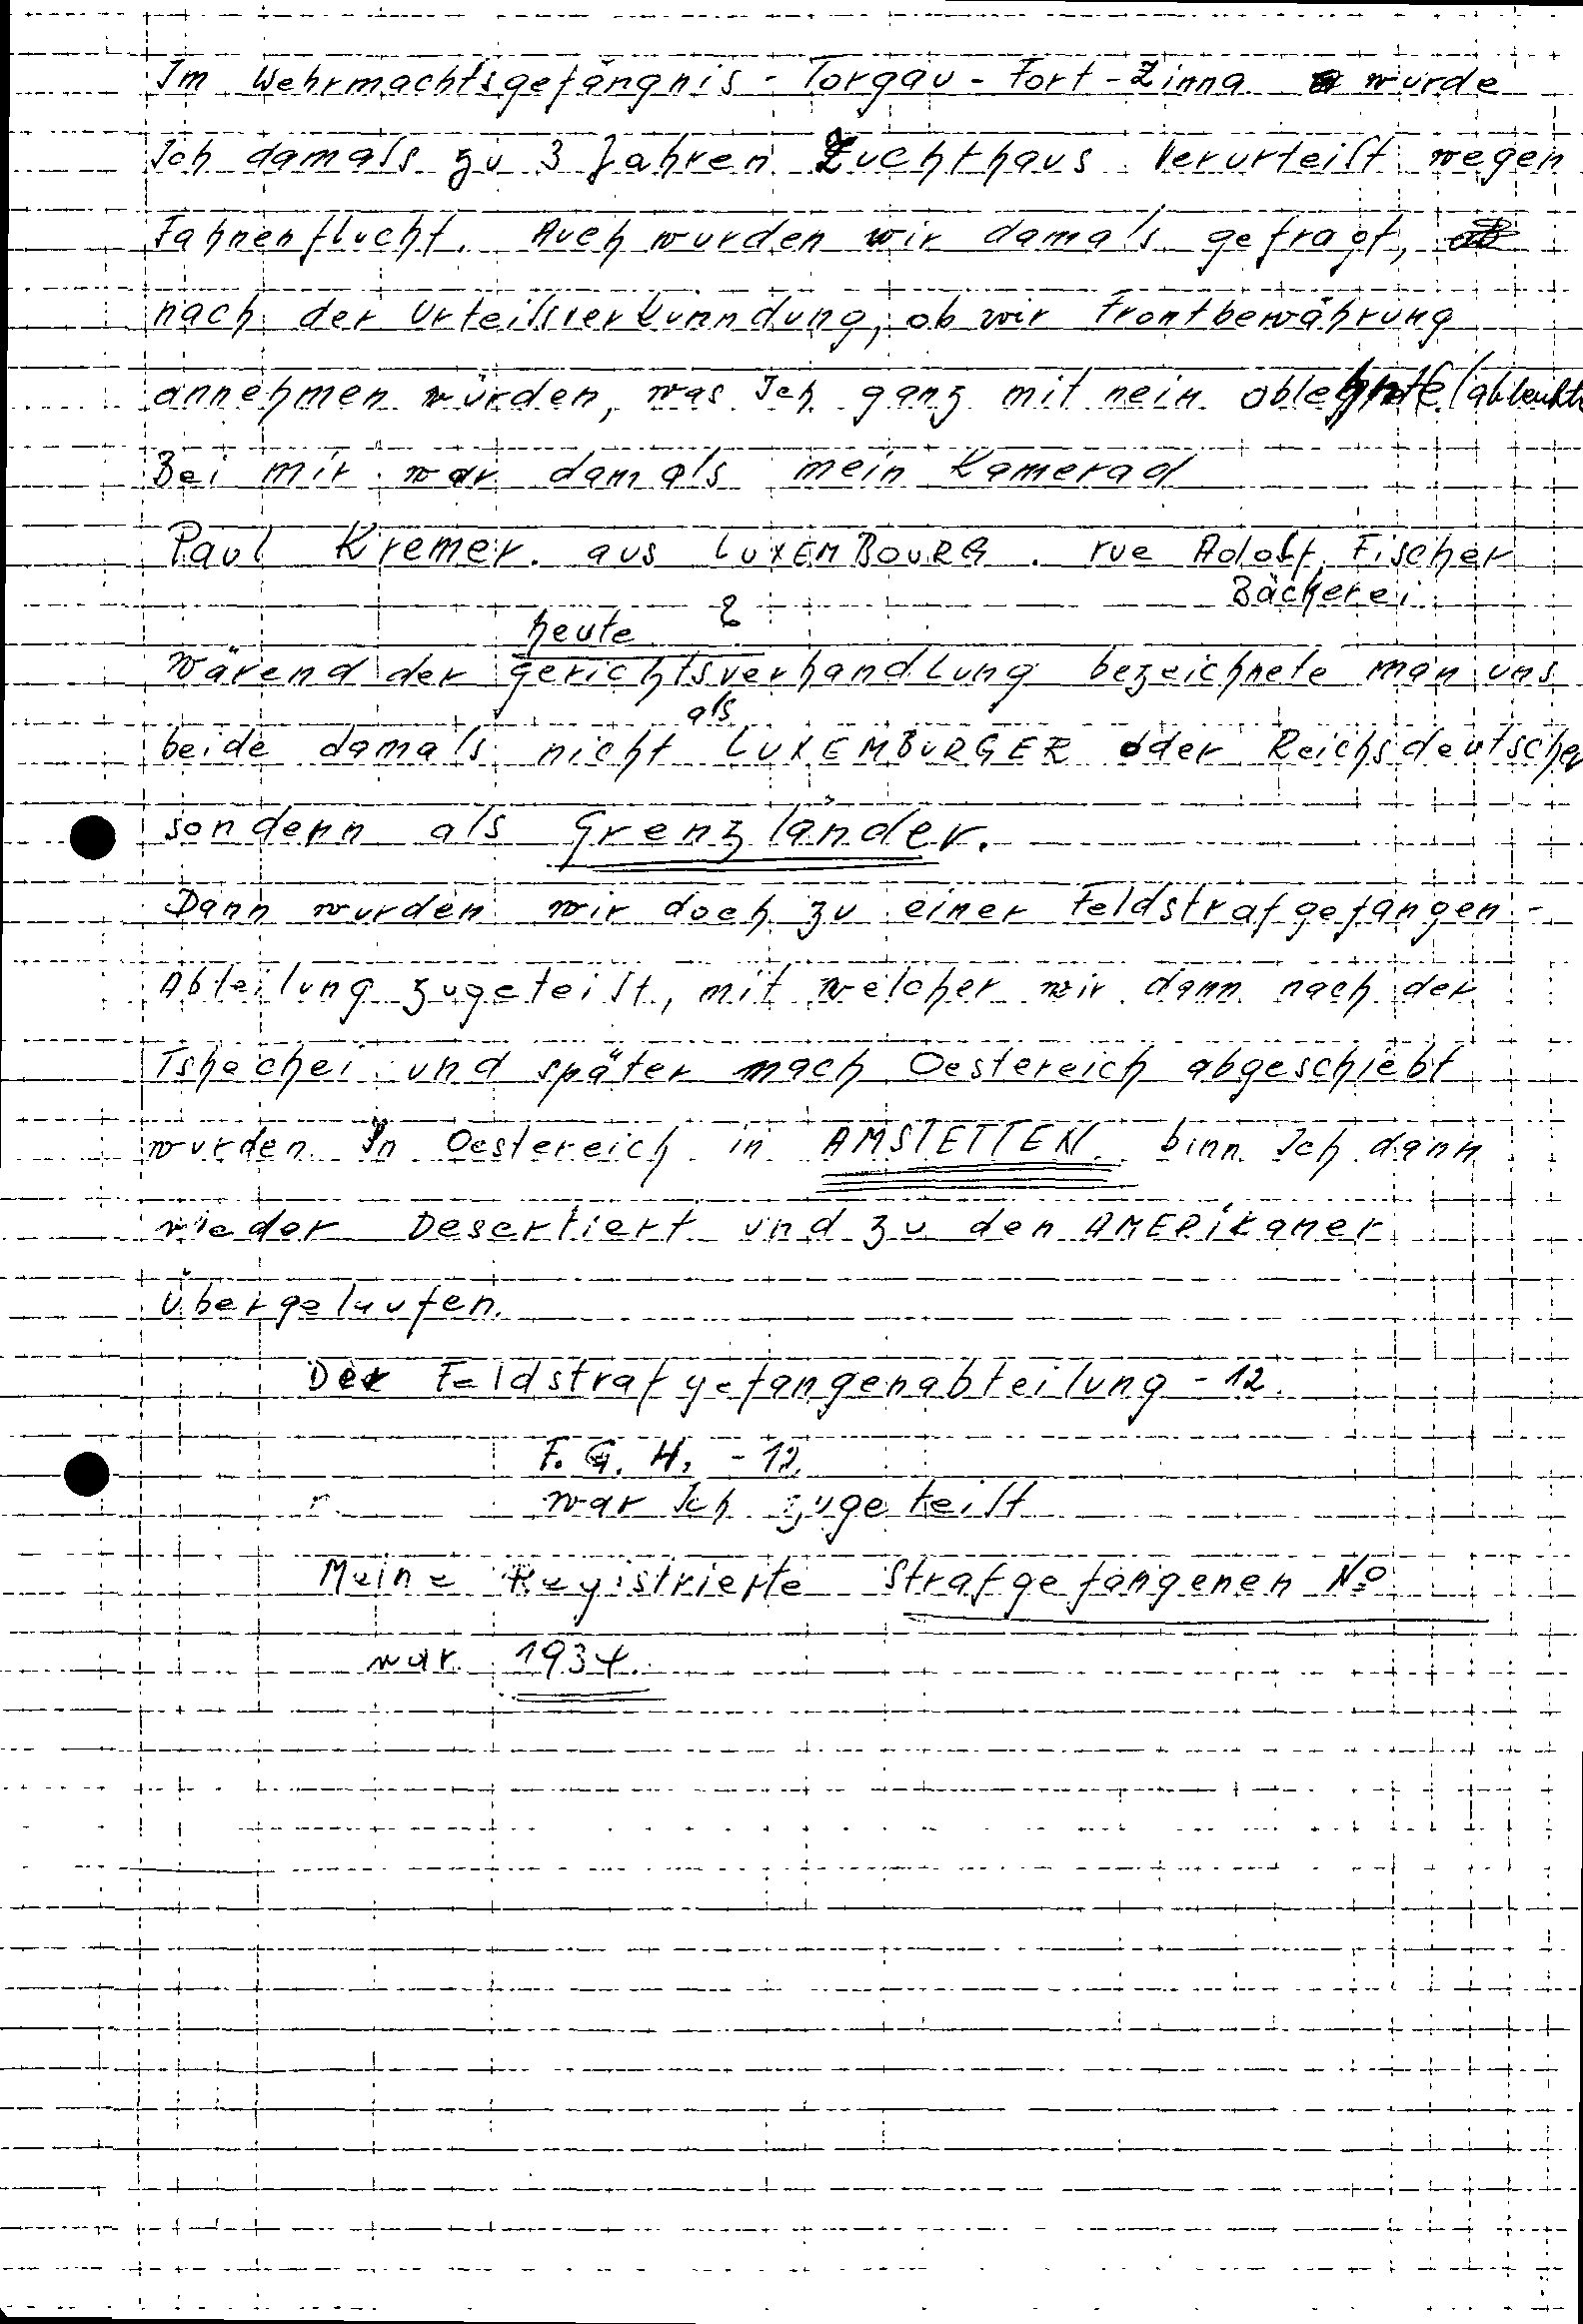 Im Wehrmachtsgefängnis - Torgau - Fort - Zinna wurde
Ich damals zu 3 Jahren Zuchthaus Verurteilt wegen
Fahnenflucht. Auch wurden wir damals gefragt,
nach der Urteilsverkunndung, ob wir Frontbewährung
annehmen würden, was Ich ganz mit nein ablehnte
Bei mir war damals mein Kamerad
Paul Kremer. aus LUXEMBOURG. rue Adolf Fischer
Bäckerei
heute ?
Wärend der gerichtsverhandlung bezeichnete man uns
als
beide damals nicht LUXEMBURGER oder Reichsdeutscher
sondern als Grenzländer.
Dann wurden wir doch zu einer Feldstrafgefangen -
Abteilung zugeteilt, mit welcher wir dann nach der
Tshechei und später nach Oestereich abgeschiebt
wurden In Oestereich in AMSTETTEN. binn Ich dann
wieder Desertiert und zu den AMERiKaner
übergelaufen.
Der Feldstrafgefangenabteilung - 12.
F. G. H. - 12.
war Ich zugeteilt
Meine Registrierte Strafgefangenen No
war 1934.